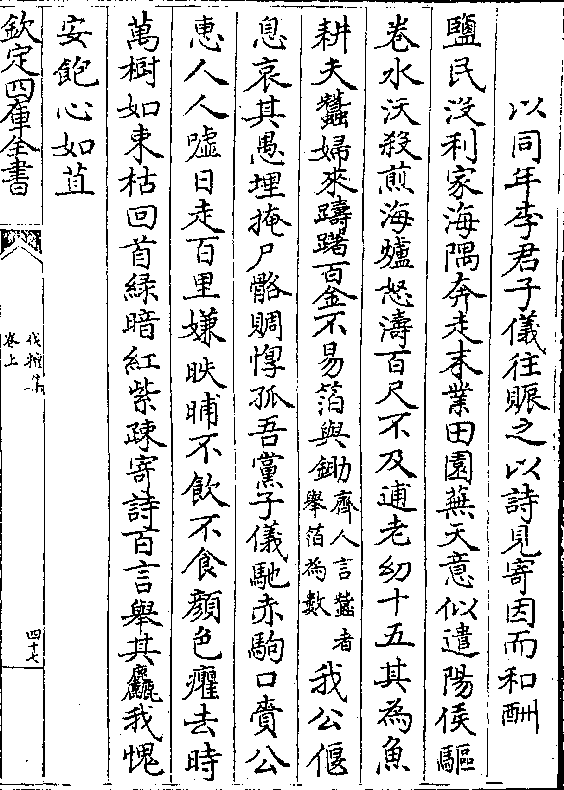 以同年李君子儀往賑之以詩見寄因而和酬
鹽民沒利家海隅奔走末業田園蕪天意似遣陽侯驅
卷水沃殺煎海爐怒濤百尺不及逋老幼十五其為魚
耕夫蠶婦來躊躇百金不易箔與鋤齊人言蠶者舉箔為數我公傴
息哀其愚埋掩尸骼賙惸孤吾黨子儀馳赤駒口賫公
惠人人噓日走百里嫌昳晡不飲不食顏色癯去時
萬樹如束枯回首緑暗紅紫疎寄詩百言舉其麤我愧
安飽心如苴
欽定四庫全書
伐檀集
卷上
四十七